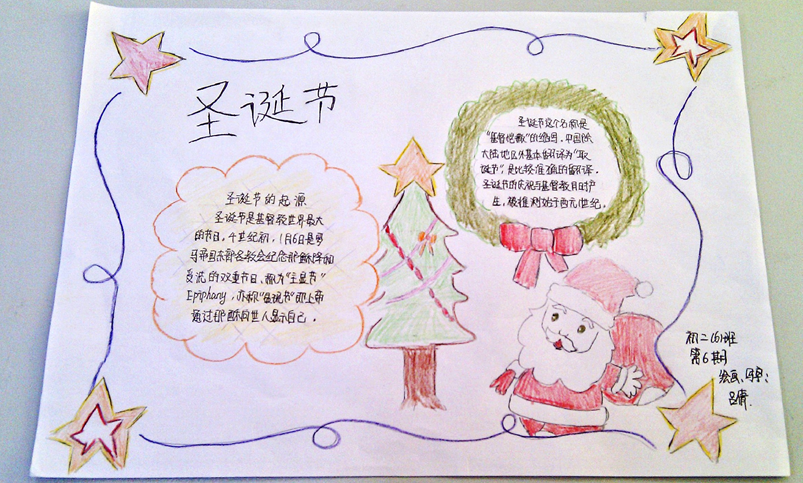 圣诞节
圣诞节的起源
圣诞节是基督教世界最大
的节日。4世纪初,1月6日是罗
马帝国东部各教会纪念耶稣降和
受洗的双重节日、称为“主显节”
Epiphany,亦称“显现节”即上帝
通过耶稣向世人显示自己。
圣诞节这个名称是
“基督弥撒”的缩写。中国除
大陆地区外基本翻译为“耶
诞节”,是比较准确的翻译。
圣诞节的庆祝与基督教同时产
生,被推测始于西元1世纪。
初二(6)班
第6期
绘画、